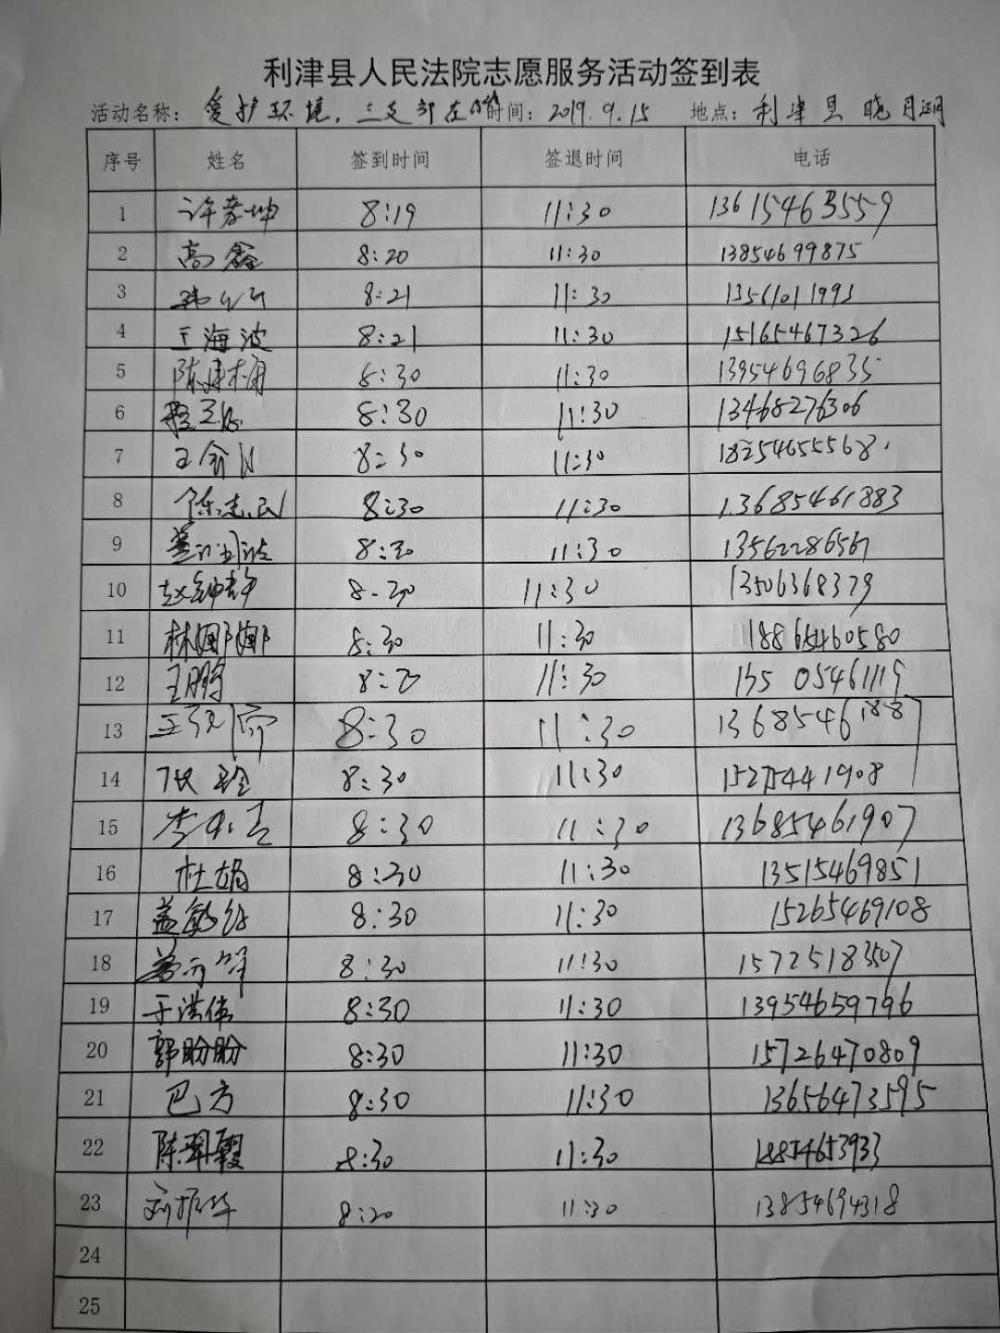 利津县人民法院志愿服务活动签到表
活动名称：爱护环境，三支部在 时间：2019.9.15 地点：利津县晓月湖
序号 姓名 签到时间 签退时间 电话
1 许孝坤 8:19 11:30 13615463559
2 高鑫 8:20 11:30 13854699875
3 8:21 11:30 13561011993
4 王海波 8:21 11:30 15165467326
5 陈建楠 8:30 11:30 13954696835
6 8:30 11:30 13468276306
7 8:30 11:30
8 陈志民 8:30 11:30 13685461883
9 8:30 11:30 13562286567
10 赵钟静 8:30 11:30 13506368379
11 林娜娜 8:30 11:30 18865460580
12 王鹏 11:30 13505461119
13 8:30 11:30 13685461887
14 张玲 8:30 11:30 15275441908
15 8:30 11:30 13685461907
16 杜娟 8:30 11:30 13515469851
17 盖 8:30 11:30 15265469108
18 8:30 11:30 15725183507
19 于洪伟 8:30 11:30 13954659796
20 郭盼盼 8:30 11:30 15726470809
21 巴方 8:30 11:30 13656473595
22 陈翠霞 8:30 11:30 18854653933
23 刘振华 8:20 11:30 13854694318
24
25